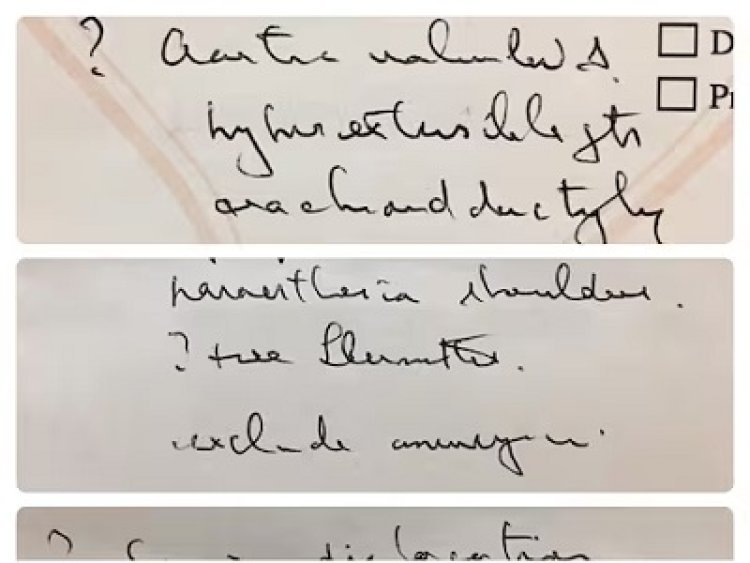 ? Aortic valve
D
hyperextensible jts
arachnodactyly
paraesthesia shoulders.
? true Lhermitte.
exclude aneurysm.
? dislocation